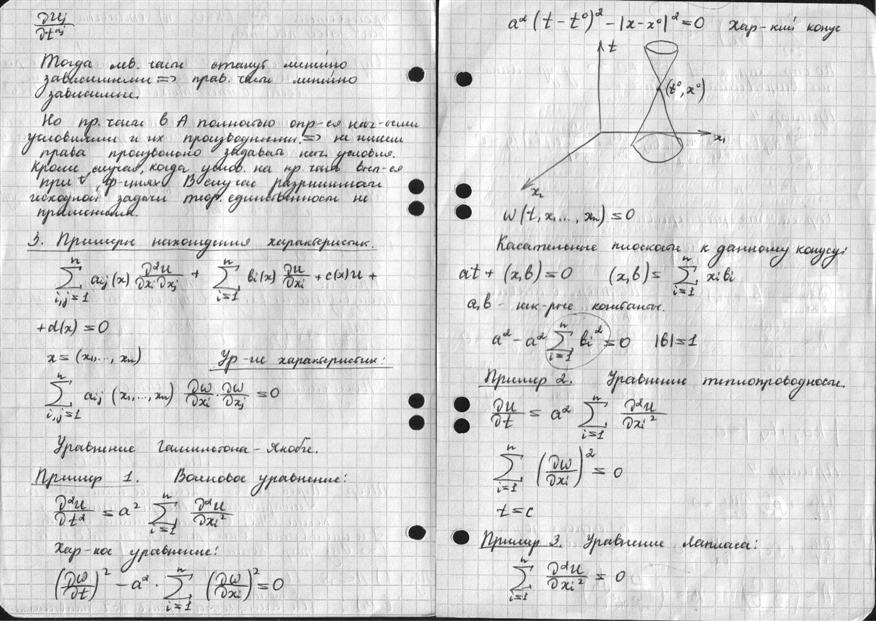 ∂u_j / ∂t^{n_j}
Тогда лв. части станут линейно
зависимыми => прав. части линейно
зависимые.
Но пр. части в A полностью опр-ся нач-ыми
условиями и их производными. => не имеем
права произвольно задавать нач. условия.
Кроме случая, когда услов. на пр. части вып-ся
при ф-циях В случае разрешимости
исходной задачи теор. единственности не
применима.
3. Примеры нахождения характеристик.
∑_{i,j=1}^{n} a_{ij}(x) ∂²u/∂x_i∂x_j + ∑_{i=1}^{n} b_i(x) ∂u/∂x_i + c(x)u +
+ d(x) = 0
x = (x_1, ..., x_n) Ур-ие характеристик:
∑_{i,j=1}^{n} a_{ij}(x_1, ..., x_n) ∂ω/∂x_i · ∂ω/∂x_j = 0
Уравнение Гамильтона-Якоби.
Пример 1. Волновое уравнение:
∂²u/∂t² = a² ∑_{i=1}^{n} ∂²u/∂x_i²
Хар-кое уравнение:
(∂ω/∂t)² - a² · ∑_{i=1}^{n} (∂ω/∂x_i)² = 0
a²(t - t⁰)² - |x - x⁰|² = 0 Хар-кий конус
t
(t⁰, x⁰)
x_1
x_2
ω(t, x_1, ..., x_n) = 0
Касательные плоскости к данному конусу:
at + (x, b) = 0 (x, b) = ∑_{i=1}^{n} x_i b_i
a, b - нек-рые константы.
a² - a² ∑_{i=1}^{n} b_i² = 0 |b| = 1
Пример 2. Уравнение теплопроводности.
∂u/∂t = a² ∑_{i=1}^{n} ∂²u/∂x_i²
∑_{i=1}^{n} (∂ω/∂x_i)² = 0
t = c
Пример 3. Уравнение Лапласа:
∑_{i=1}^{n} ∂²u/∂x_i² = 0